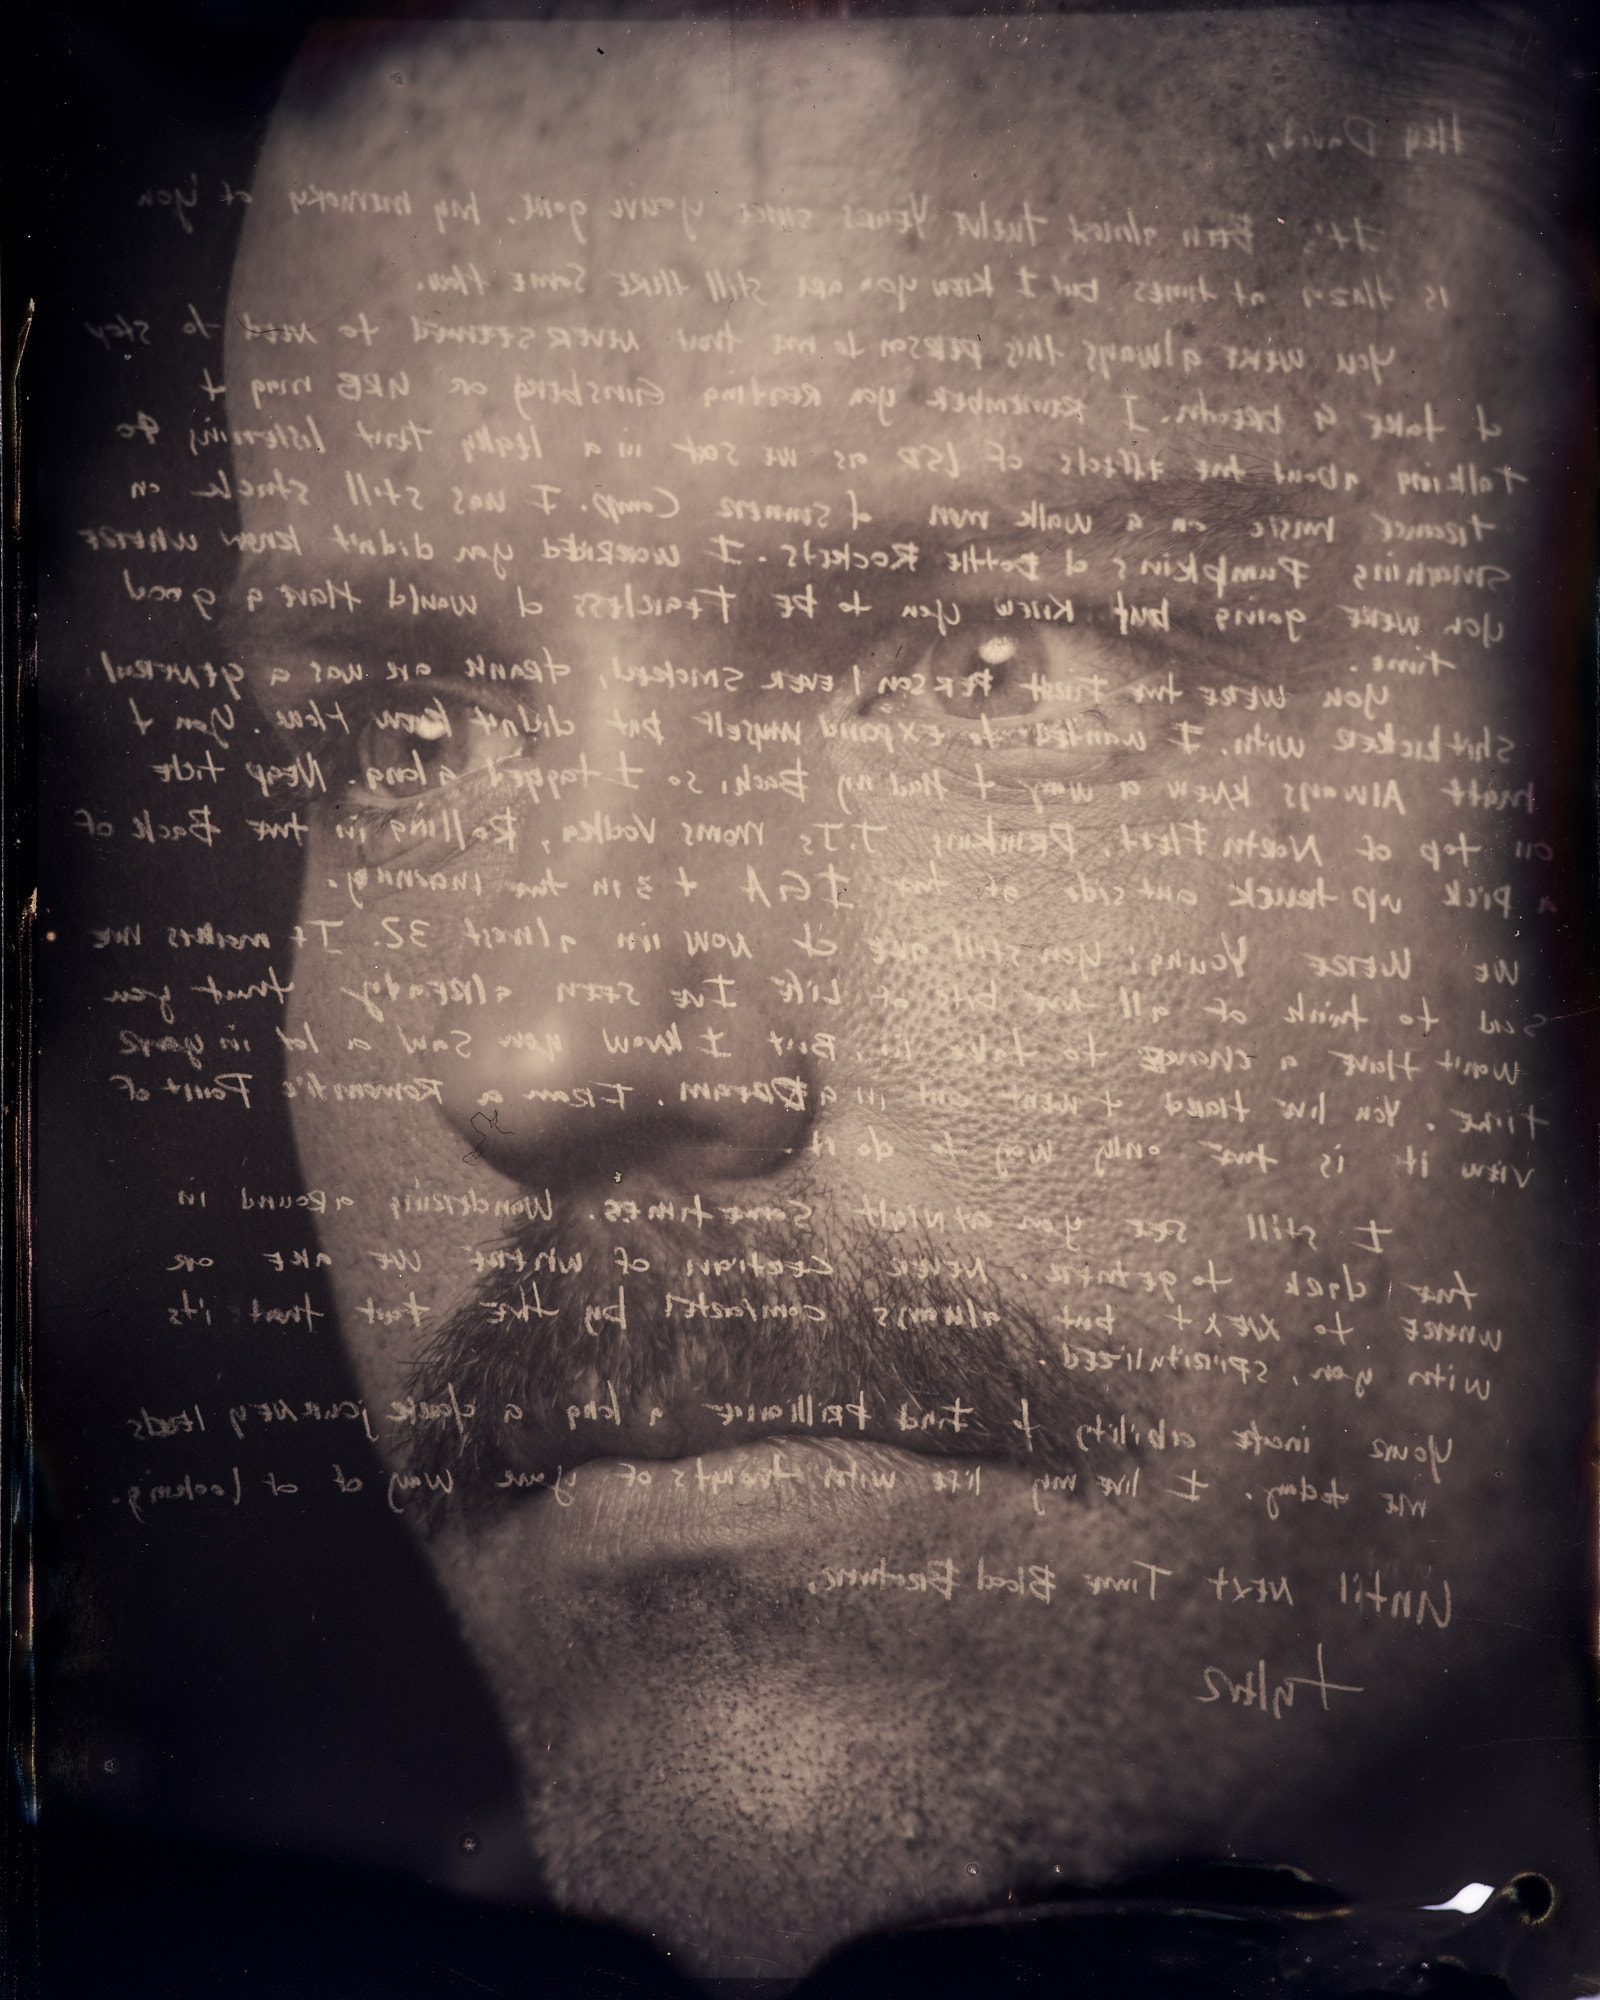 Hey David,
It's Been almost twelve Years since you've gone. my memory of you
is Hazy at times but I know you are still there some How.
You were always this person to me that never seemed to need to stop
& take a breath. I remember you Reading Ginsberg or
talking about the effects of LSD as we sat in a leaky tent listening to
trance music on a walk man & summer Camp. I was still stuck on
Smashing Pumpkins & Bottle Rockets. I worried you didn't know where
you were going but knew you to be Fearless & would Have a good
time.
You were the First Person I ever smoked, drank or was a general
shitkicker with. I wanted to expand myself but didn't know How. You &
Matt Always knew a way & Had my Back, so I tagged along. Neap tide
on top of North Fleet. Drinking T.J's Moms Vodka, Rolling in the Back of
a Pick up truck outside of the IGA & 3 in the morning.
We Were Young; you still are & now im almost 32. It makes me
sad to think of all the bits of Life I've seen already that you
wont Have a chance to take in. But I know you saw a lot in your
time. You live Hard & went out in a Dream. From a Romantic Point of
view it is the only way to do it.
I still see you at Night sometimes. Wandering around in
the dark together. Never certian of where we are or
where to next but always comforted by the fact that its
with you, spiritulized.
Your inate ability to find brilliance a long a dark journey leads
me today. I live my life with thoughts of your way of of looking.
Until Next Time Blood Brother,
Tyler